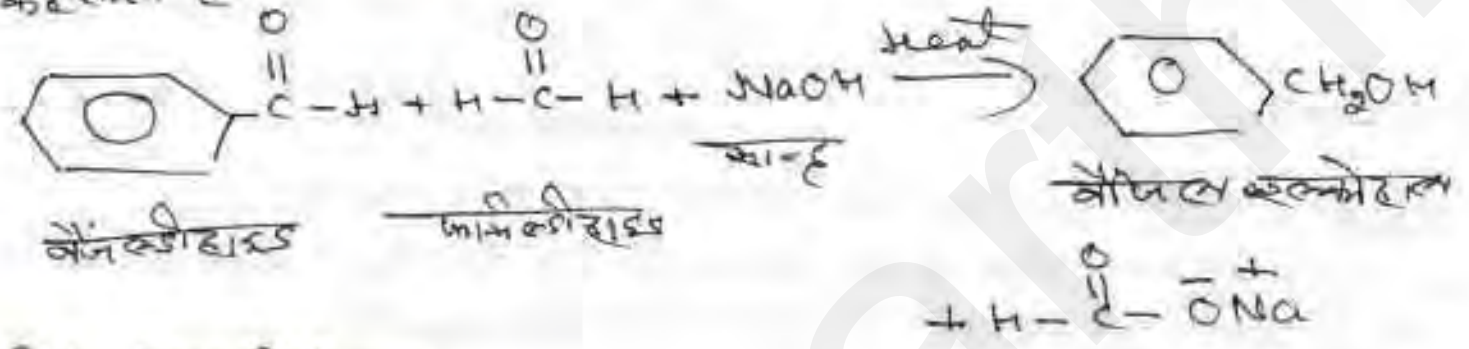 O O
|| ||
C – H + H – C – H + NaOH Heat → CH₂OH
सान्द्र
बैंजल्डीहाइड फार्मल्डीहाइड बैंजिल एल्कोहाल
O
||
+ H – C – O⁻ Na⁺